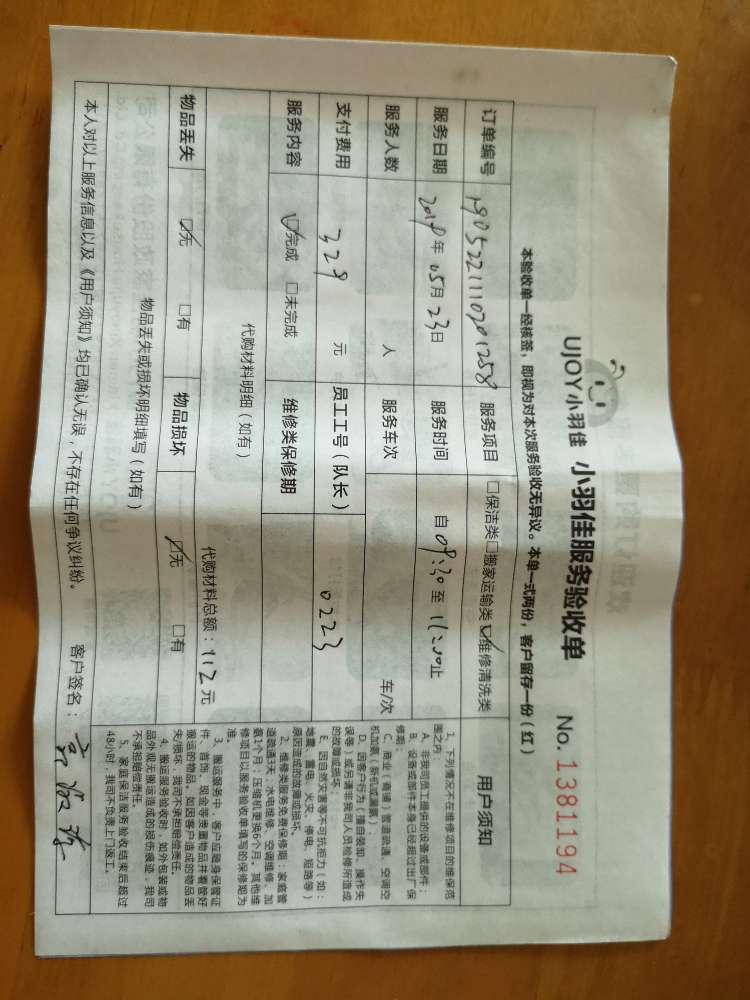 UJOY小羽佳 小羽佳服务验收单 No. 1381194
本验收单一经核签，即视为对本次服务验收无异议。本单一式两份，客户留存一份（红）
订单编号 1905221110201258 服务项目 □保洁类□搬家运输类☑维修清洗类
服务日期 2019年05月23日 服务时间 自09:30至11:20止
服务人数 人 服务车次 车/次
支付费用 329 元 员工工号（队长） 0223
服务内容 ☑完成 □未完成 维修类保修期
代购材料明细（如有） 代购材料总额：112元
物品丢失 ☑无 □有 物品损坏 ☑无 □有
物品丢失或损坏明细填写（如有）
本人对以上服务信息以及《用户须知》均已确认无误，不存在任何争议纠纷。 客户签名：
用户须知
1、下列情况不在维修项目的维保范
围之内：
A、非我司员工提供的设备或部件；
B、设备或部件本身已经超过出厂保
修期；
C、商业（商铺）管道疏通、空调空
机加氟（新机或漏氟）；
D、因客户行为（擅自装卸、操作失
误等）或另请非我司人员检修所造成
的故障或损坏。
E、因自然灾害等不可抗拒力（如：
地震、雷电、火灾、停电、短路等）
原因造成的故障或损坏。
2、维修类服务免费保修期：家庭管
道疏通3天；水电维修、空调维修、加
氟1个月；压缩机更换6个月。其他维
修项目以服务验收单填写的保修期为
准。
3、搬运服务中，客户应随身保管证
件、首饰、现金等贵重物品并看管好
搬运的物品。如因客户造成的物品丢
失/损坏，我司不承担赔偿责任。
4、搬运服务验收时，如外包装或物
品外观无搬运造成的损伤痕迹，我司
不承担赔偿责任。
5、家庭保洁服务验收结束后超过
48小时，我司不负责上门返工。